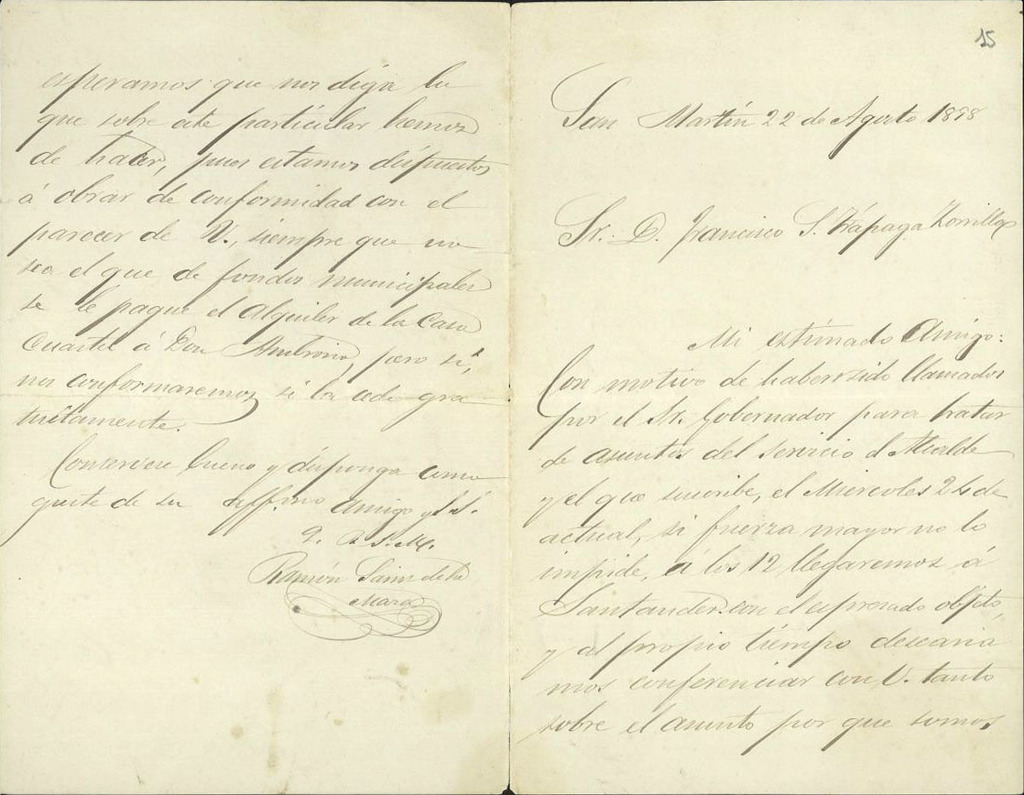 15
San Martín 22 de Agosto 1898
Sr. D. Francisco S. Trápaga Zorrilla
Mi estimado Amigo:
Con motivo de haber sido llamados
por el Sr. Gobernador para tratar
de asuntos del servicio el Alcalde
y el que suscribe, el Miercoles 24 de
actual, si fuerza mayor no lo
impide, á las 12 llegaremos á
Santander con el espresado objeto,
y al propio tiempo desearia
mos conferenciar con V. tanto
sobre el asunto por que somos,
esperamos que nos diga lo
que sobre este particular hemos
de hacer, pues estamos dispuestos
á obrar de conformidad con el
parecer de V., siempre que no
sea el que de fondos municipales
se le pague el Alquiler de la Casa
Cuartel á Don Ambrosio, pero si,
nos conformaremos si la cede gra
tuitamente.
Conservese bueno y disponga como
guste de su affmo amigo y S. S.
Q. B. S. M.
Ramón Sainz de la
Maza